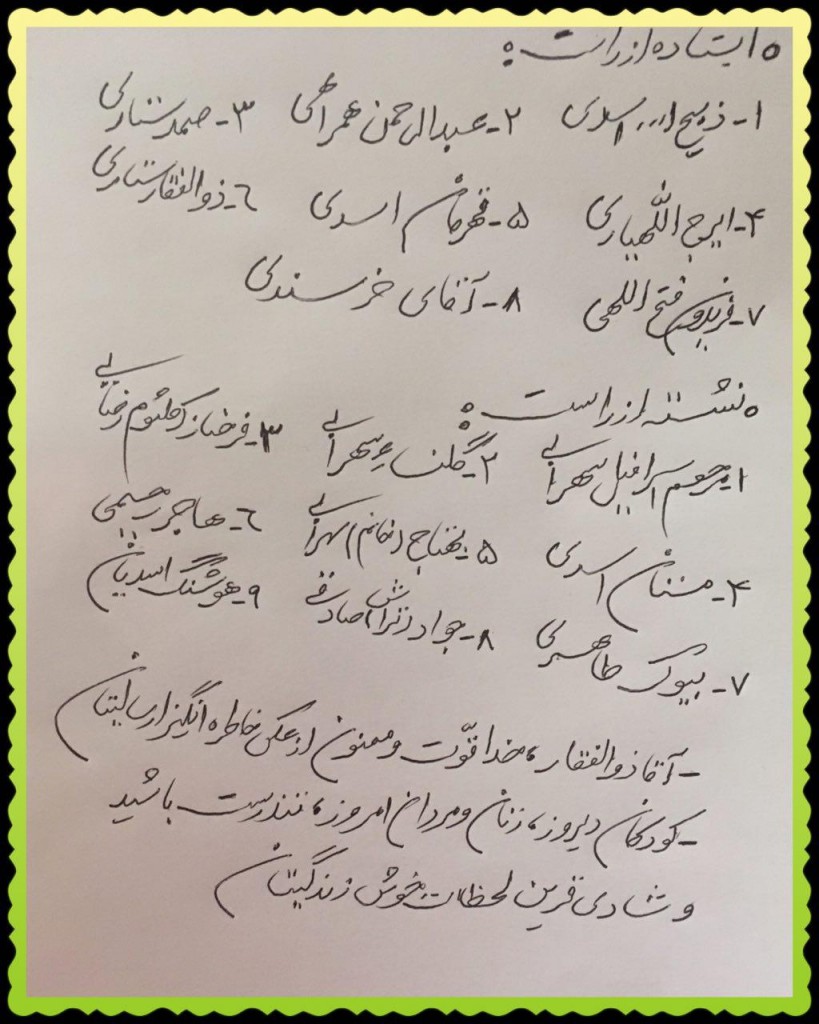 ایستاده از راست:
۱- ذبیح ا... اسدی ۲- عبدالرحمن همراهی ۳- صمد ستاری
۴- ایرج اللهیاری ۵- قهرمان اسدی ۶- ذوالفقار ستاری
۷- فریدون فتح اللهی ۸- آقای خرسندی
نشسته از راست:
۱- مرحوم اسرافیل سهرابی ۲- گلنساء سهرابی ۳- فرحناز (کلثوم) رضایی
۴- منان اسدی ۵- (خانم) سهرابی ۶- هاجر رحیمی
۷- بیوک طاهری ۸- جواد صادقی ۹- هوشنگ اسدیان
- آقا ذوالفقار، خدا قوّت و ممنون از عکس خاطره انگیز ارسالیتان
- کودکان دیروز، زنان و مردان امروز، تندرست باشید
و شادی قرین لحظات خوش زندگیتان